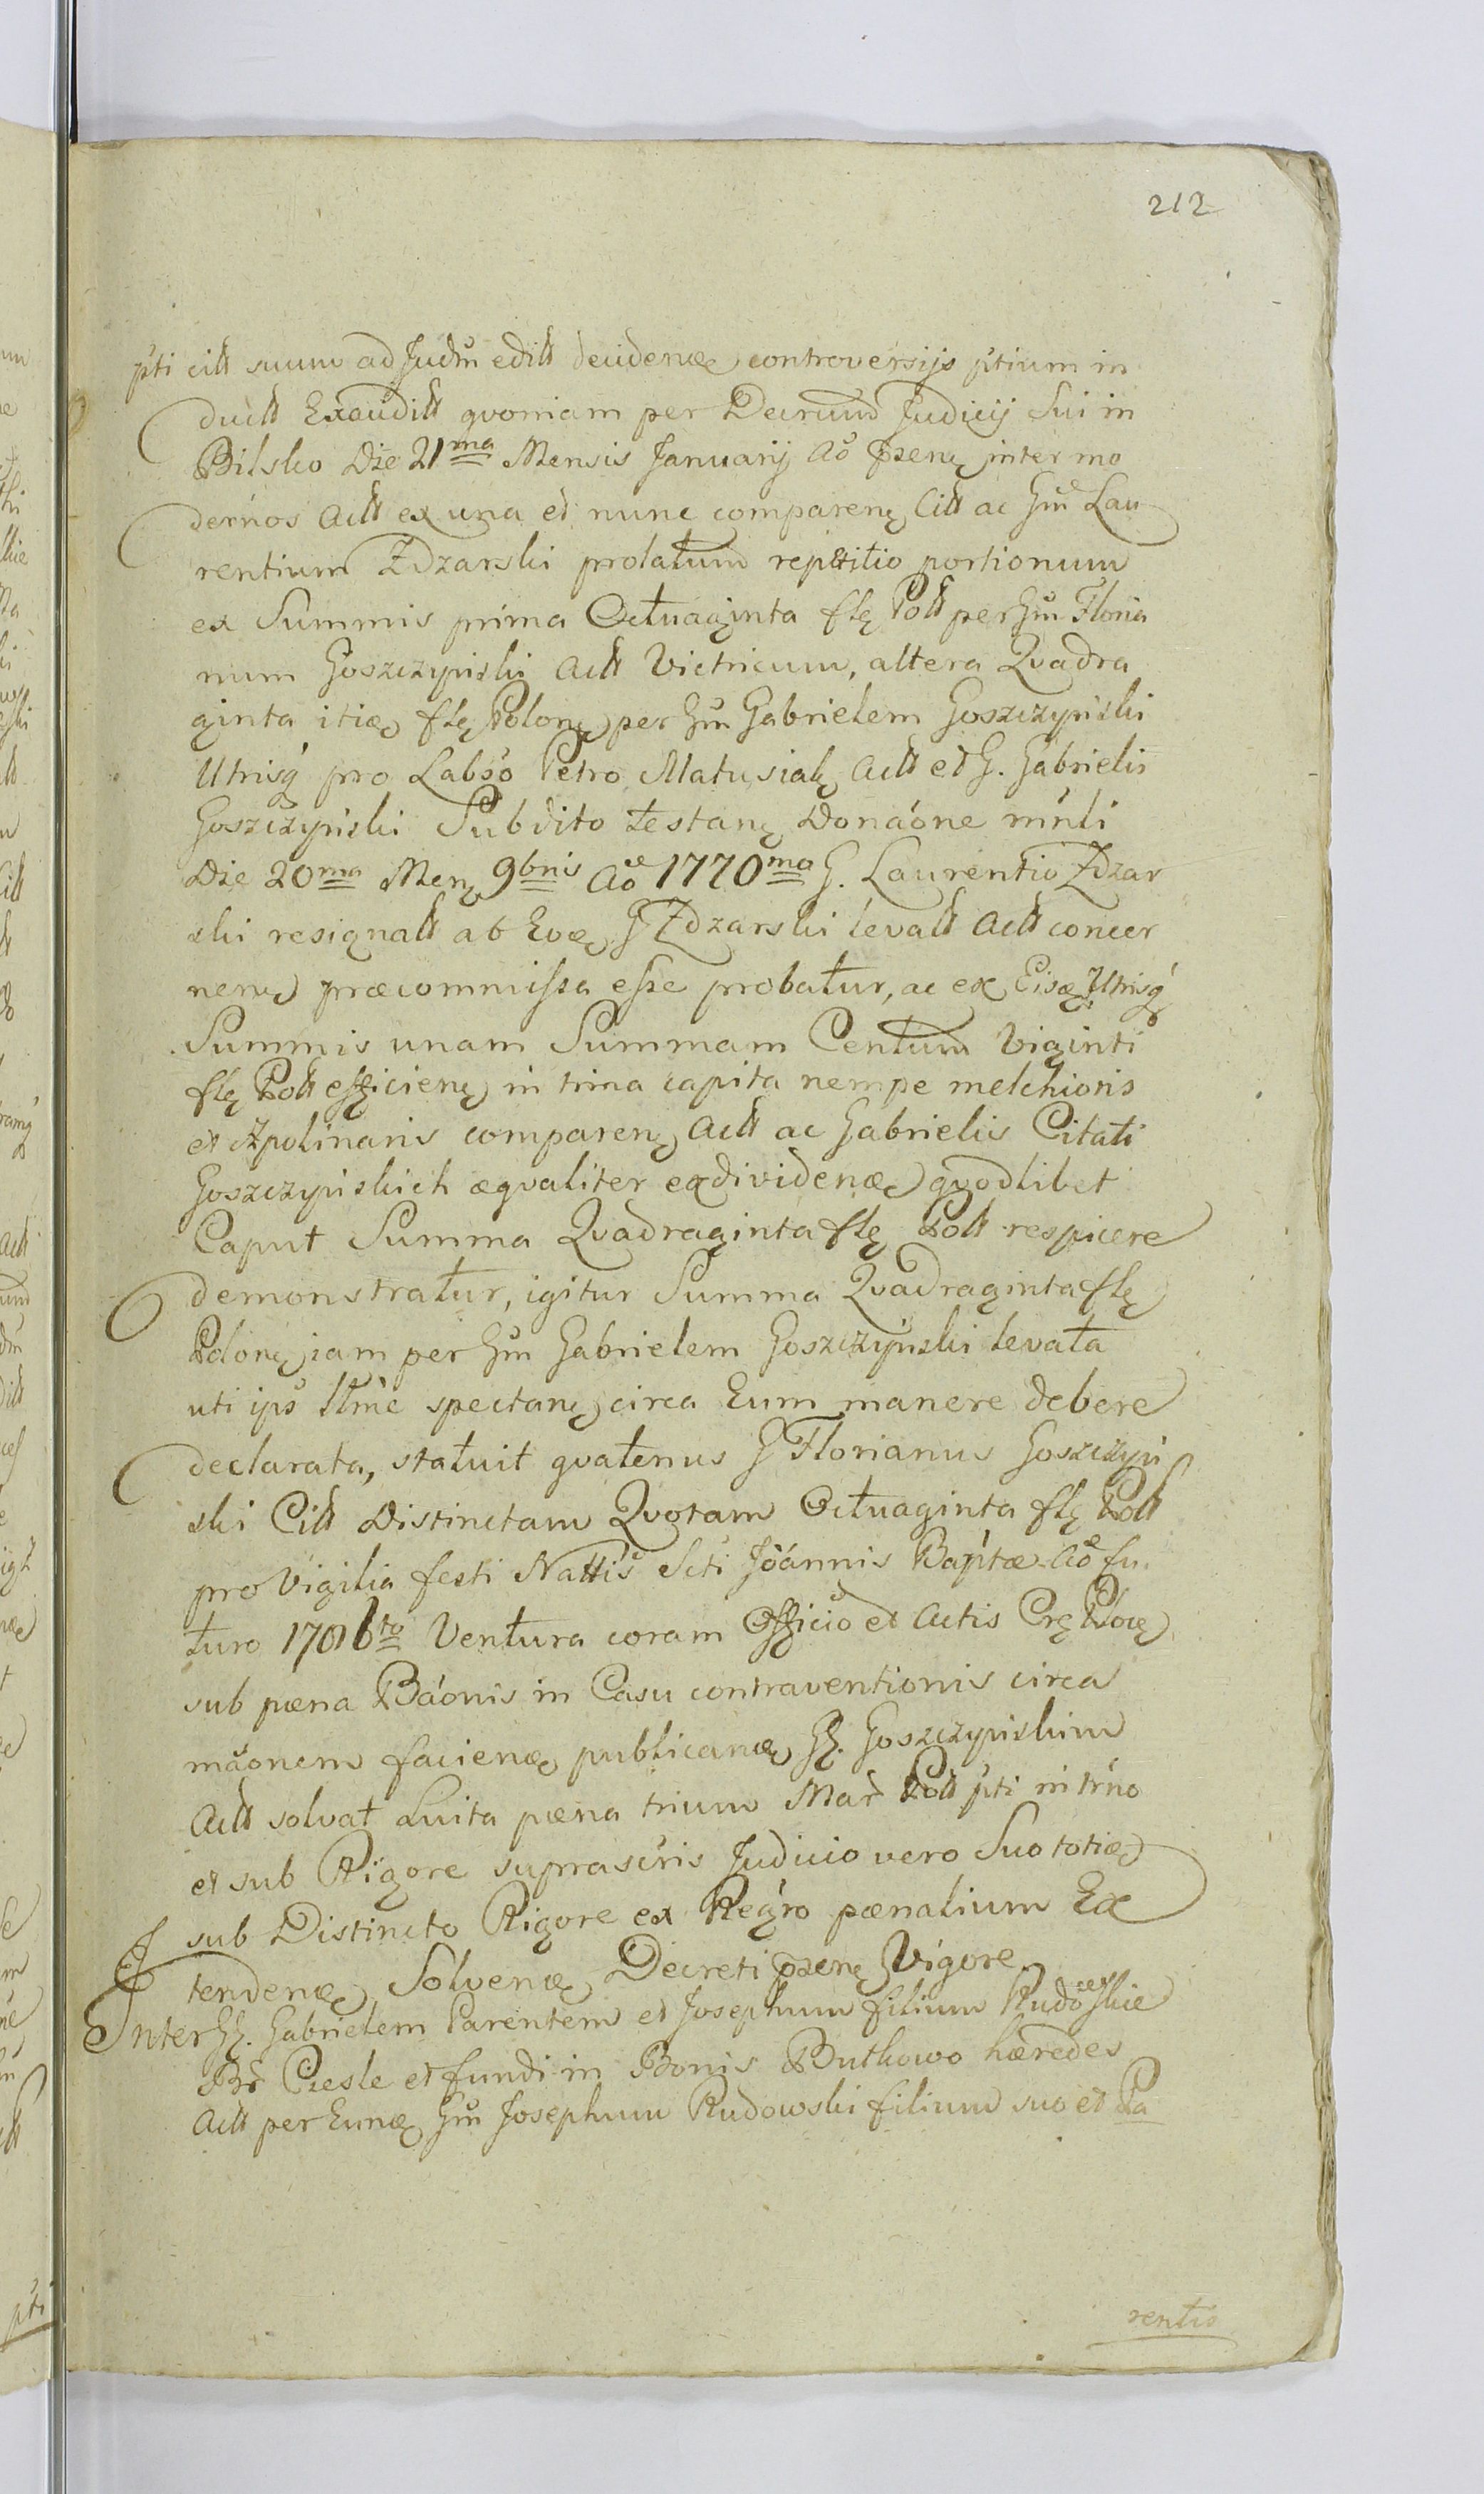 212
pti citt suum ad Judm editt decidenæ controversijs ptium in
ductt Exauditt qvoniam per Decretum Judicij Sui in
Bilsko Die 21ma Mensis Januarij Ao præsenę inter mo
dernos Actt ex una et nunc comparenę Citt ac Gm Lau
rentium Zdzarski prolatum repetitio portionum
ex Summis prima Octuaginta flę Poll per Gm Floria
num Goszczynski Actt Victricum, altera Qvadra
ginta itiæ flę Polonę per Gm Gabrielem Goszczynski
Utrisq pro Labso Petro Matusiak Actt et G. Gabrielis
Goszczynski Subdito testanę Donaone mnli
Die 20ma Menę 9bris Ao 1770mo G. Laurentio Zdzar
ski resignatt ab Evæ G Zdzarski levatt Actt concer
nenę præcommissa esse probatur, ac ex Eisæ Utrisq
Summis unam Summam Centum Viginti
flę Poll efficienę in trina capita nempe melchioris
et Apolinaris comparenę Actt ac Gabrielis Citati
Goszczynskich æqvaliter exdividenæ qvodlibet
Caput Summa Qvadraginta flę Poll respicere
demonstratur, igitur Summa Qvadraginta flę
Polonę iam per Gm Gabrielem Goszczynski levata
uti ips ltme spectanę circa Eum manere debere
declarata, statuit qvatenus G Florianus Goszczyn
ski Citt Distinctam Qvotam Octuaginta flę Poll
pro Vigilia festi Nattis Scti Joannis Baptæ Ao fu
turo 1786to Ventura coram Officio et Actis Crę Plocę
sub pæna Baonis in Casu contraventionis circa
maonem facienæ publicanæ GG. Goszczynskim
Actt solvat Luita pæna trium Mar Poll pti in trno
et sub Rigore suprascris Judicio vero Suo totiæ
sub Distincto Rigore ex Regro pænalium Ex
tendenæ Solvenæ Decreti præsenę Vigore
Inter GG. Gabrielem Parentem et Josephum filium Rudowskie
Br Ciesle et fundi in Bonis Butkowo hæredes
Actt per Eunæ Gm Josephum Rudowski filium suo et Pa
rentis
pti